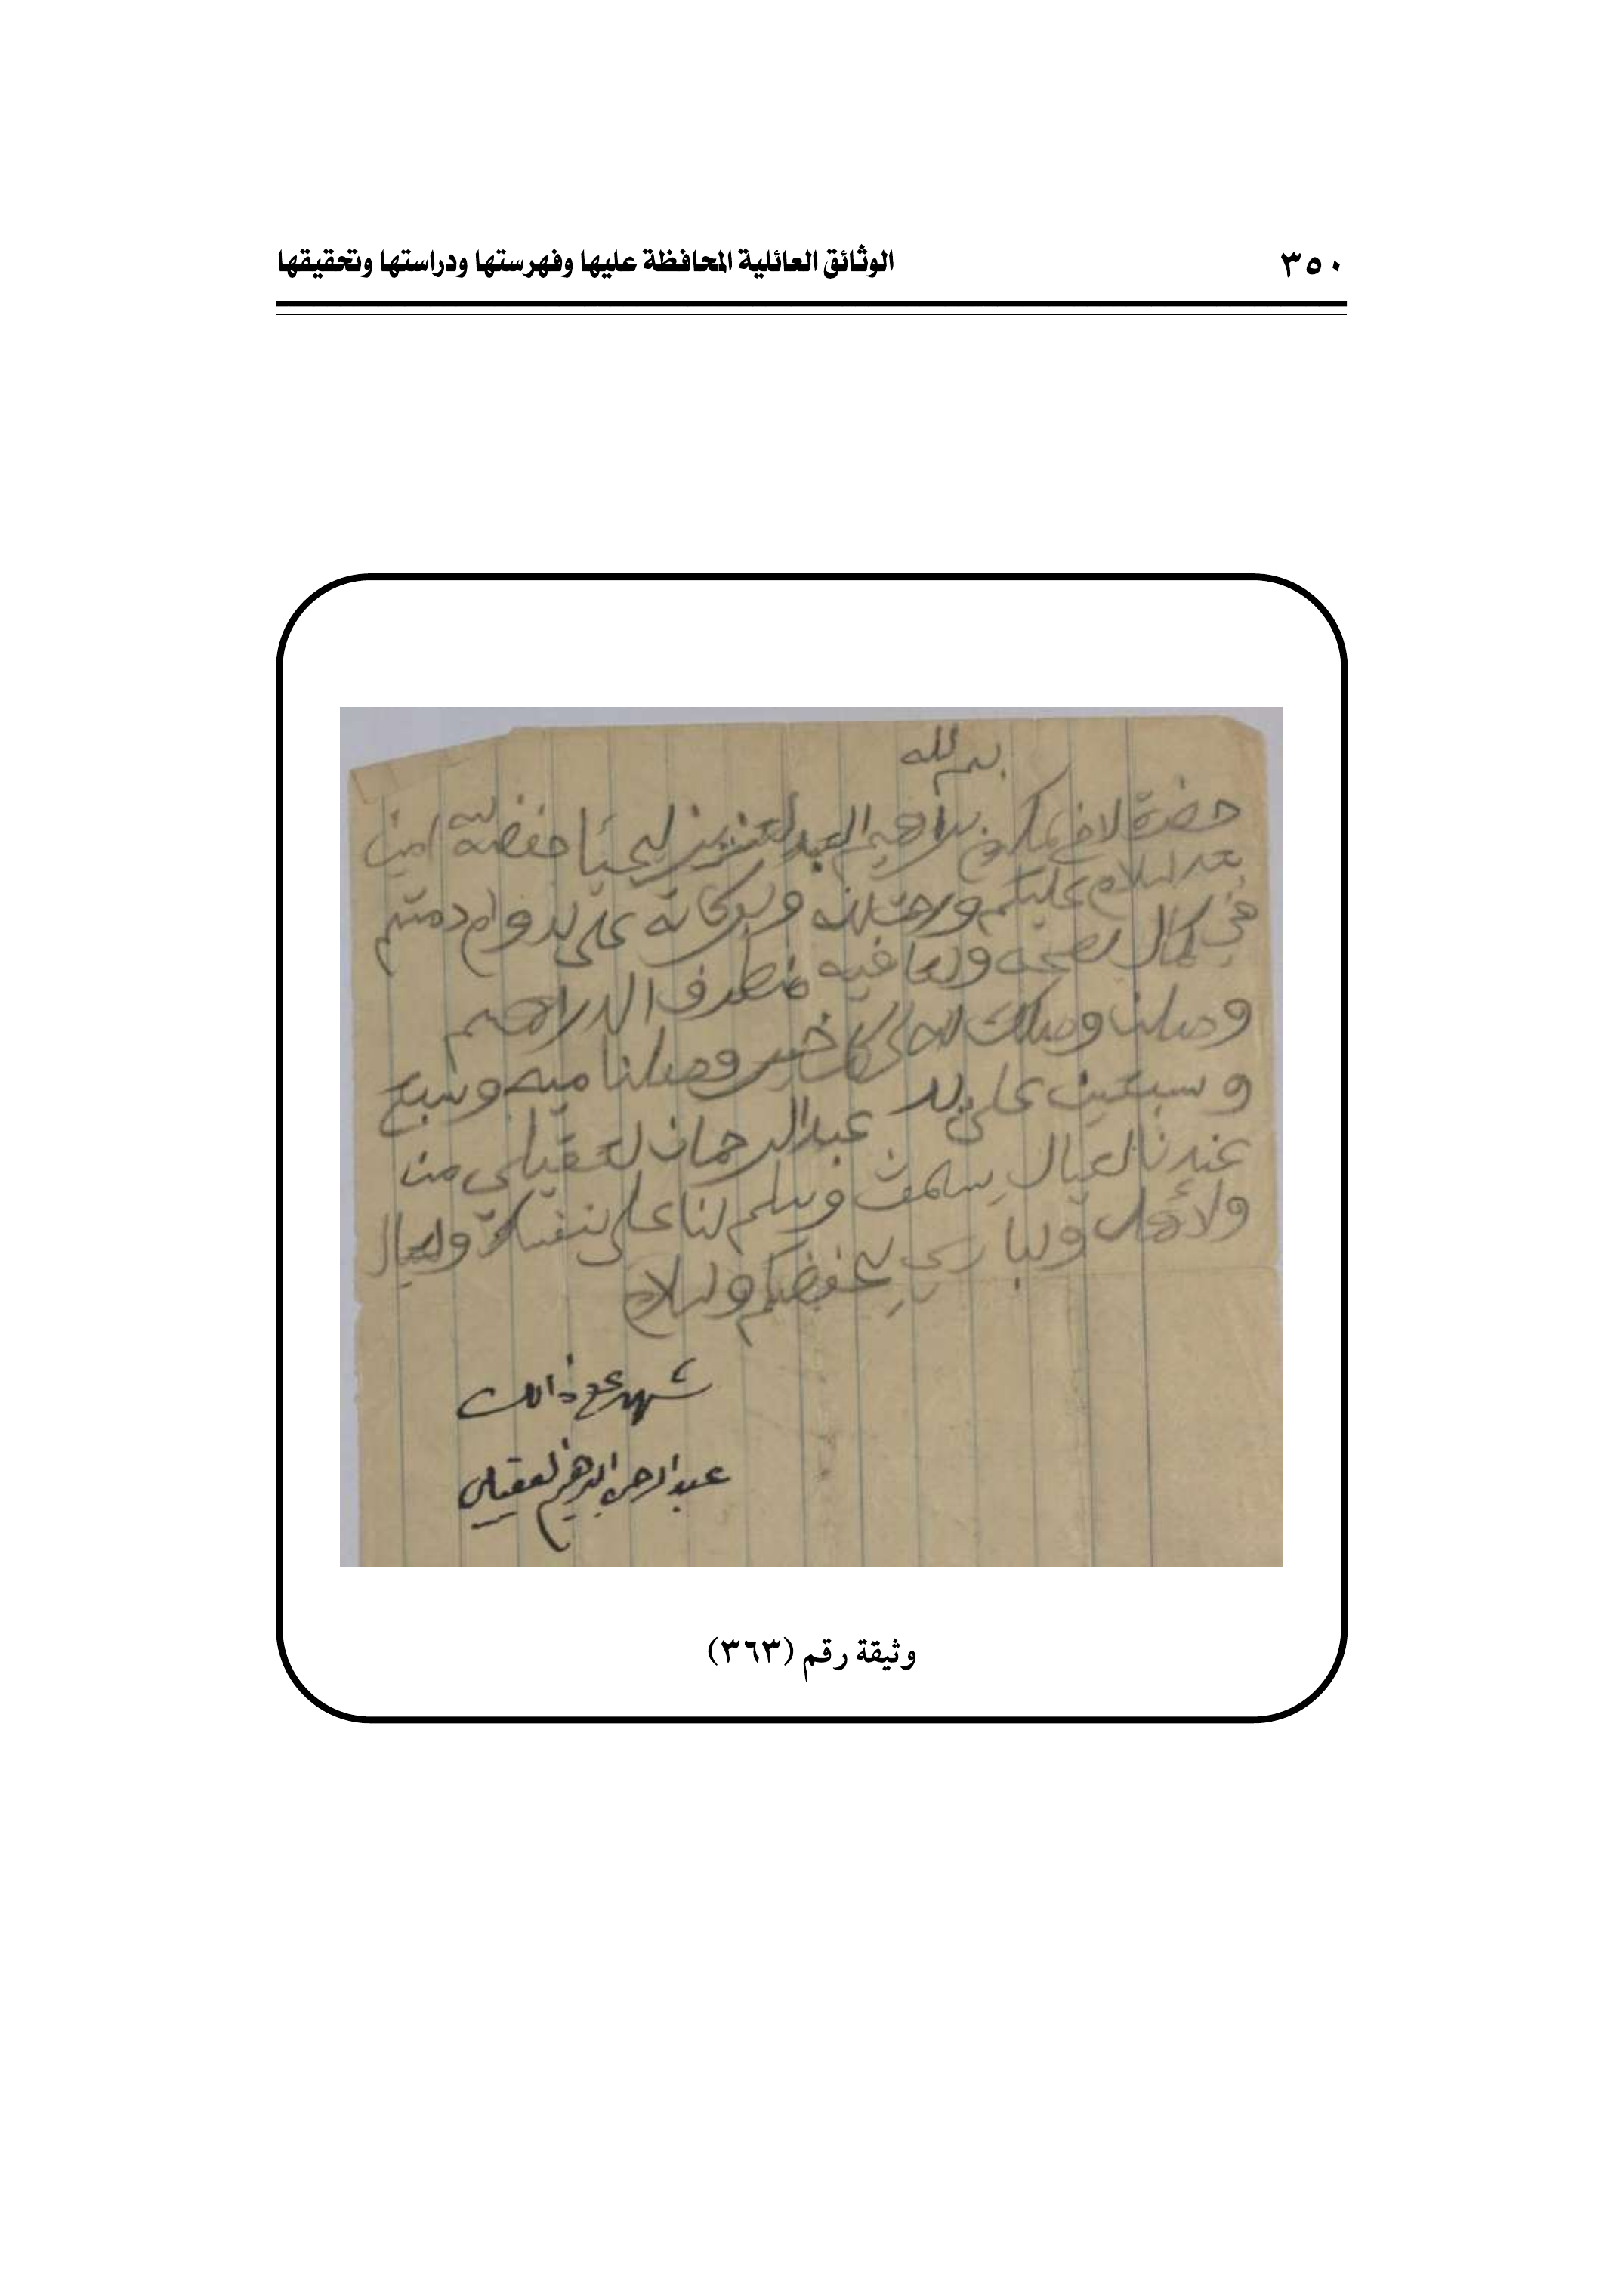 ٣٥٠
الوثائق العائلية المحافظة عليها وفهرستها ودراستها وتحقيقها
بسم لله
حضرة لاخ لمكرم براهيم العبد لعزيز ليحيا حفضه لله امين
بعد لسلام عليكم ورحمة لله وبركاته على لدوام دمتم
في كمال لصحه ولعافيه منطرف الدراهم
وصلنا وصلك لله لى كل خير وصلنا ميه وسبع
وسبعين على يد عبدالرحمان لعقيلي من
عندنا لعيال سالمين وسلم لنا على نفسك ولعيال
ولأهل ولباري يحفضكم ولسلام
شهد على ذالك
عبدالرحمن ابراهيم لعقيلي
وثيقة رقم (٣٦٣)